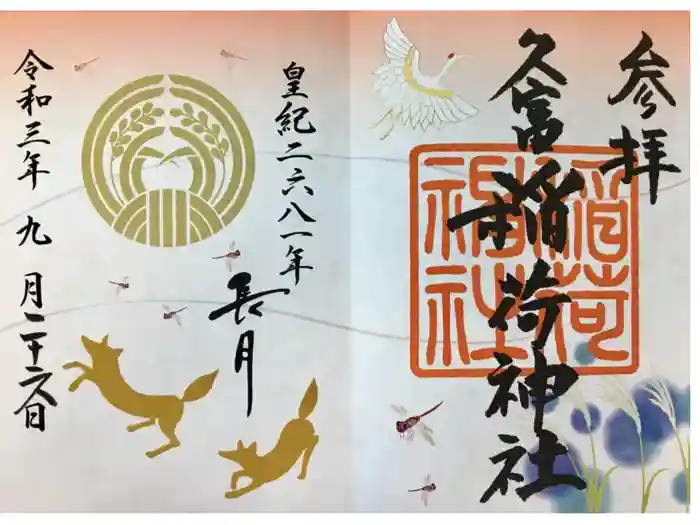 参拝
久富稲荷神社
稲荷
神社
皇紀二六八一年
長月
令和三年九月二十六日